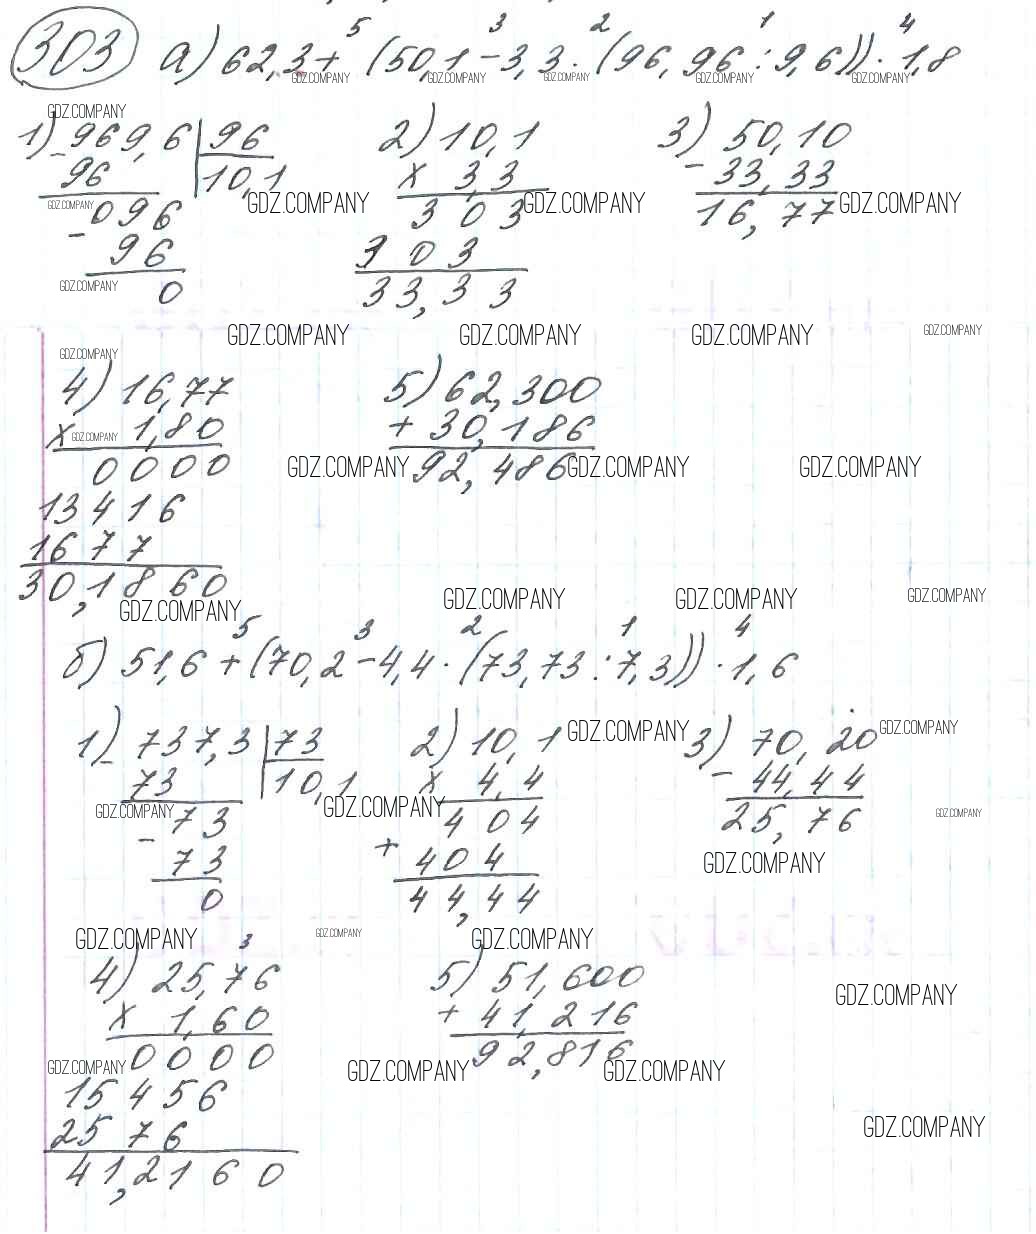 303 а) 62,3 + (50,1 - 3,3 · (96,96 : 9,6)) · 1,8
5 3 2 1 4
GDZ.COMPANY GDZ.COMPANY GDZ.COMPANY GDZ.COMPANY GDZ.COMPANY
GDZ.COMPANY
1) - 969,6 | 96 2) 10,1 3) 50,10
96 10,1 x 3,3 - 33,33
GDZ.COMPANY 096 GDZ.COMPANY 303 GDZ.COMPANY 16,77 GDZ.COMPANY
- 96 303
GDZ.COMPANY 0 33,33
GDZ.COMPANY GDZ.COMPANY GDZ.COMPANY GDZ.COMPANY
GDZ.COMPANY
4) 16,77 5) 62,300
x GDZ.COMPANY 1,80 + 30,186
0000 GDZ.COMPANY 92,486 GDZ.COMPANY GDZ.COMPANY
13416
1677
30,1860
GDZ.COMPANY GDZ.COMPANY GDZ.COMPANY GDZ.COMPANY
5 3 2 1 4
б) 51,6 + (70,2 - 4,4 · (73,73 : 7,3)) · 1,6
1) - 737,3 | 73 2) 10,1 GDZ.COMPANY 3) 70,20 GDZ.COMPANY
73 10,1 x 4,4 - 44,44
GDZ.COMPANY - 73 GDZ.COMPANY 404 25,76 GDZ.COMPANY
73 + 404 GDZ.COMPANY
0 44,44
GDZ.COMPANY 3 GDZ.COMPANY GDZ.COMPANY
4) 25,76 5) 51,600 GDZ.COMPANY
x 1,60 + 41,216
GDZ.COMPANY 0000 GDZ.COMPANY 92,816 GDZ.COMPANY
15456
2576 GDZ.COMPANY
41,2160